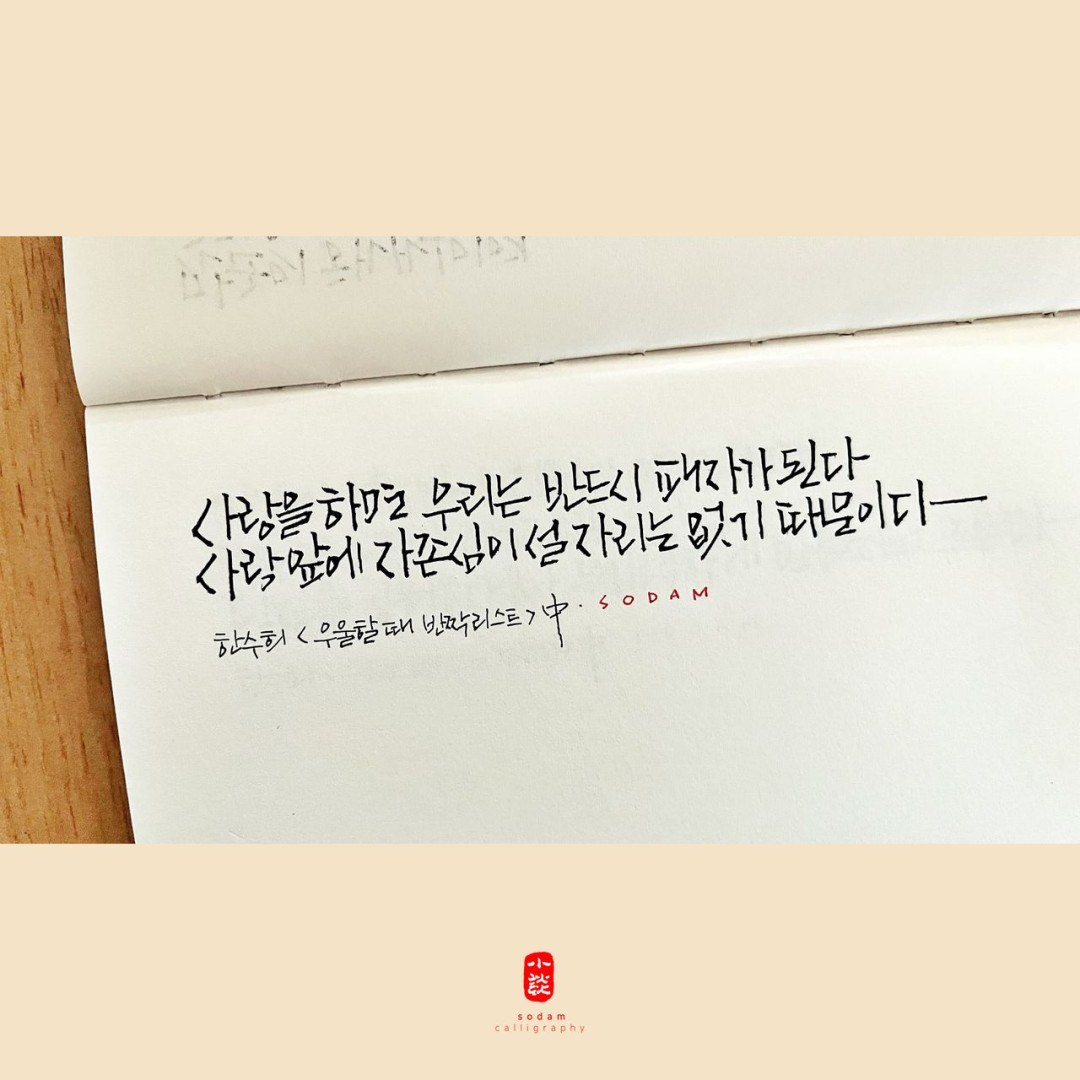 사랑을 하면 우리는 반드시 패자가 된다
사랑 앞에 자존심이 설 자리는 없기 때문이다
한수희 <우울할 때 반짝 리스트> 中 · SODAM
小談
sodam
calligraphy